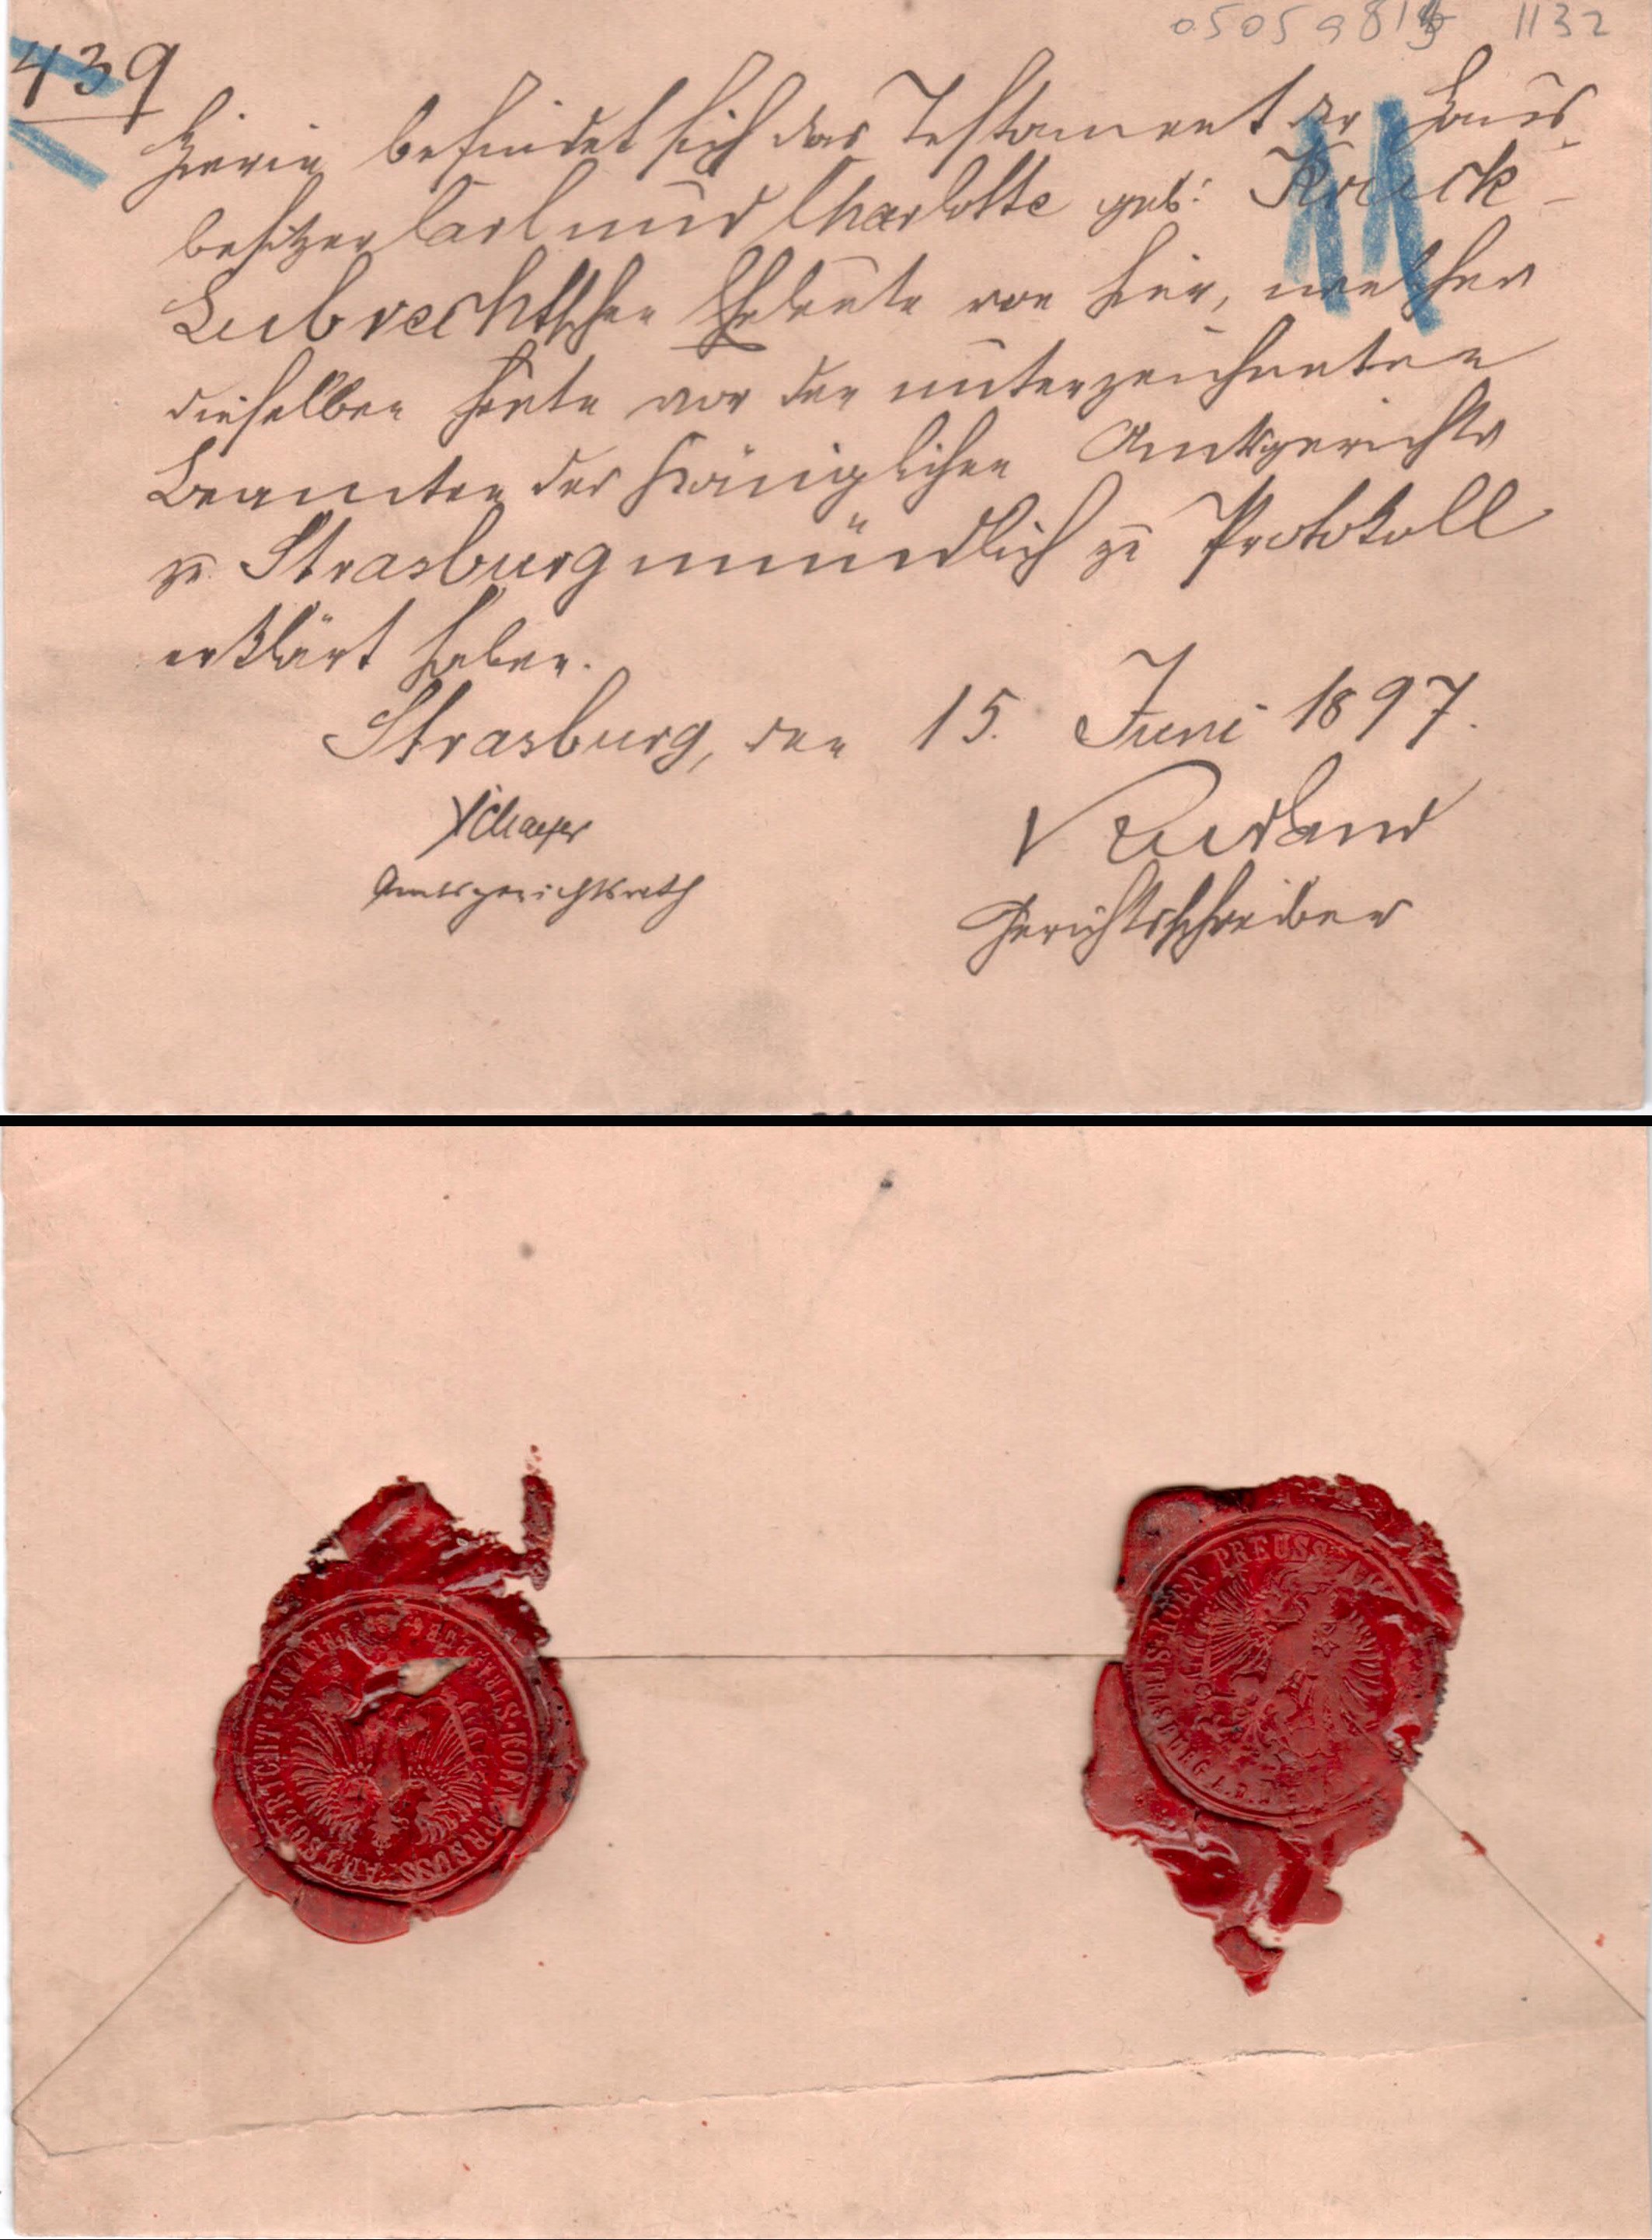 05059813 1132
439
Hierin befindet sich das Testament der Haus-
besitzer Carl und Charlotte geb: Kruck-
Leibrechtschen Eheleute von hier, welches
dieselben heute vor den unterzeichneten
Beamten des Königlichen Amtsgerichts
zu Strasburg mündlich zu Protokoll
erklärt haben.
Strasburg, den 15. Juni 1897.
Amtsgerichtsrath
Gerichtsschreiber
KOEN. PREUSS. AMTSGERICHT
KOEN. PREUSS.
STRASBURG